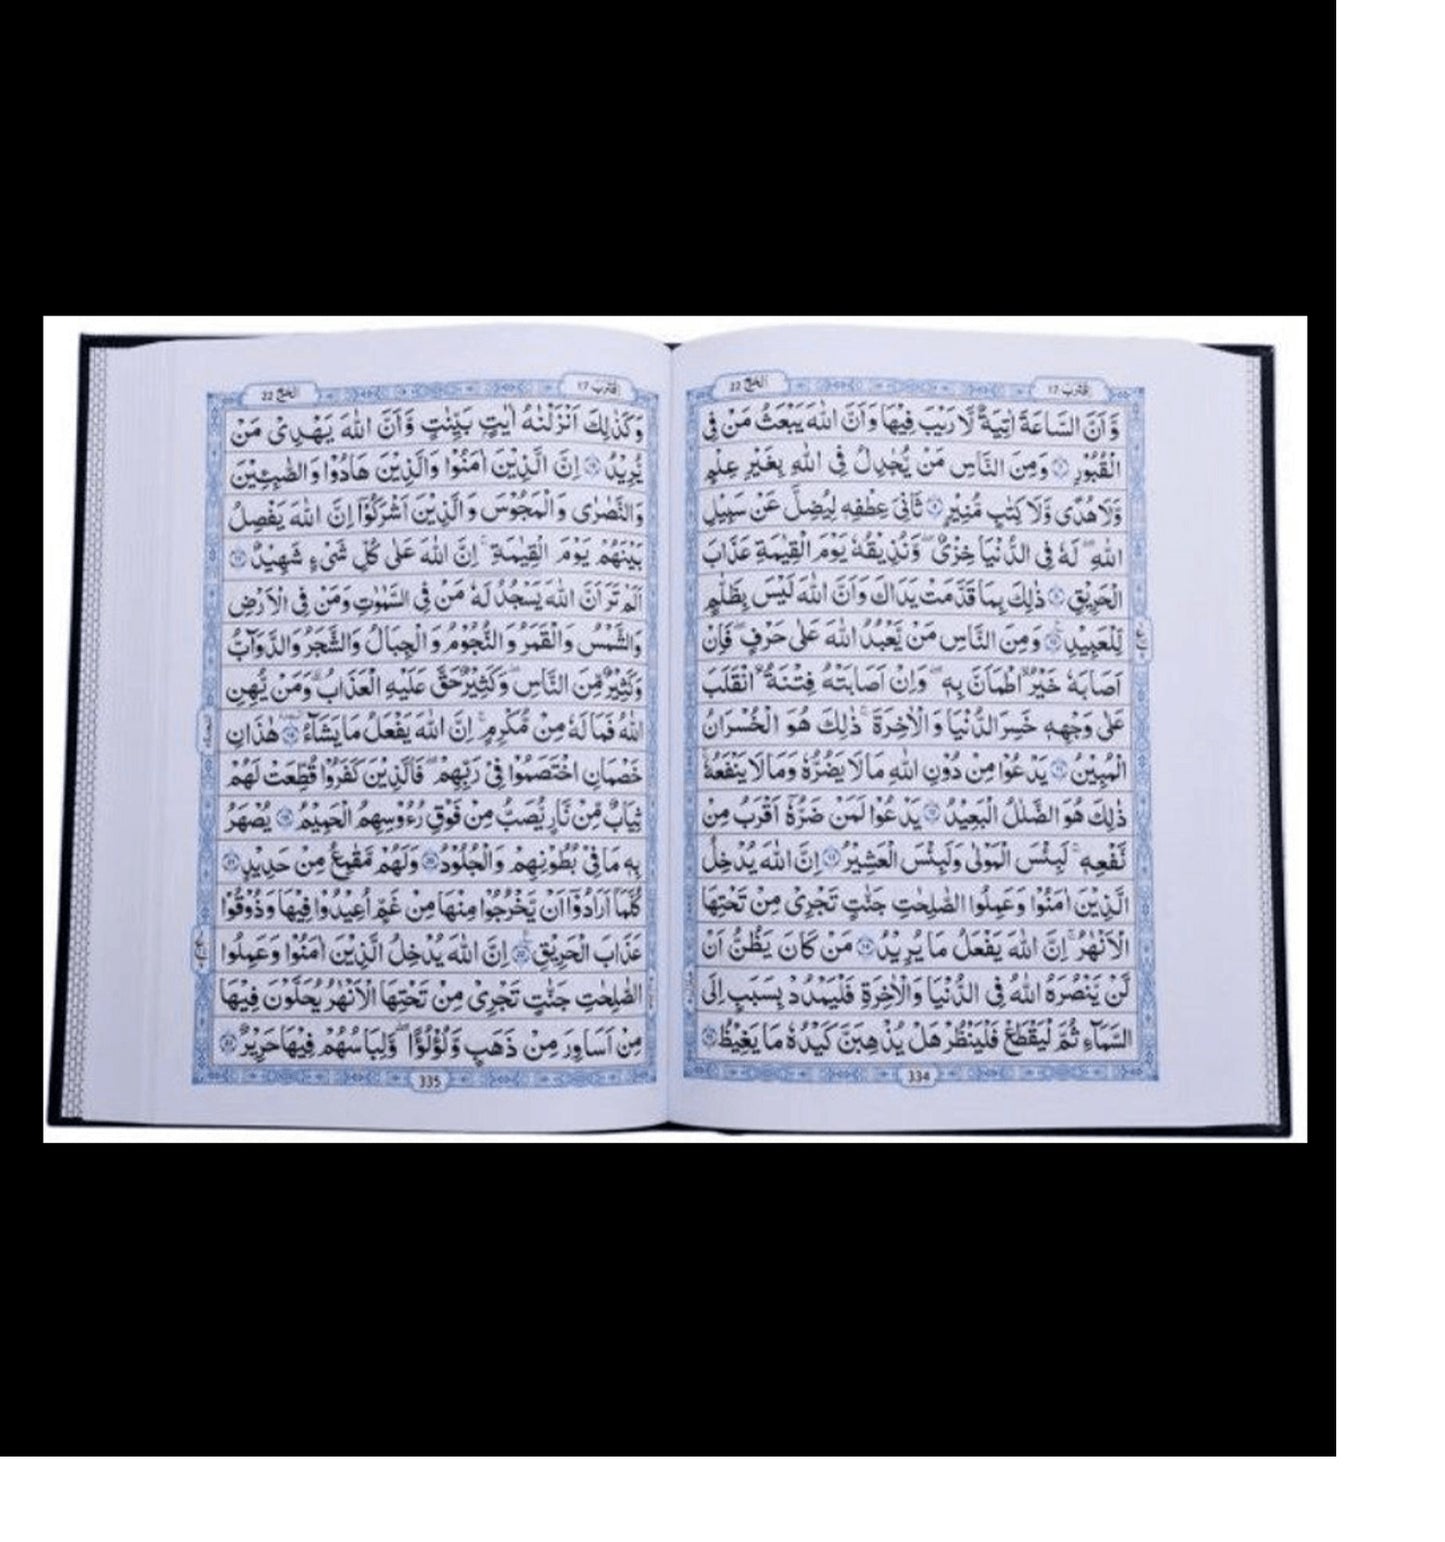 اقترب ١٧
الحج ٢٢
وَّاَنَّ السَّاعَةَ اٰتِيَةٌ لَّا رَيْبَ فِيْهَا وَاَنَّ اللّٰهَ يَبْعَثُ مَنْ فِى
الْقُبُوْرِ ۝٧ وَمِنَ النَّاسِ مَنْ يُّجَادِلُ فِى اللّٰهِ بِغَيْرِ عِلْمٍ
وَّلَا هُدًى وَّلَا كِتٰبٍ مُّنِيْرٍ ۝٨ ثَانِىَ عِطْفِهٖ لِيُضِلَّ عَنْ سَبِيْلِ
اللّٰهِ ؕ لَهٗ فِى الدُّنْيَا خِزْىٌ وَّنُذِيْقُهٗ يَوْمَ الْقِيٰمَةِ عَذَابَ
الْحَرِيْقِ ۝٩ ذٰلِكَ بِمَا قَدَّمَتْ يَدٰكَ وَاَنَّ اللّٰهَ لَيْسَ بِظَلَّامٍ
لِّلْعَبِيْدِ ۝١٠ وَمِنَ النَّاسِ مَنْ يَّعْبُدُ اللّٰهَ عَلٰى حَرْفٍ ۚ فَاِنْ
اَصَابَهٗ خَيْرُ اۨطْمَاَنَّ بِهٖ ۚ وَاِنْ اَصَابَتْهُ فِتْنَةُ اۨنْقَلَبَ
عَلٰى وَجْهِهٖ خَسِرَ الدُّنْيَا وَالْاٰخِرَةَ ؕ ذٰلِكَ هُوَ الْخُسْرَانُ
الْمُبِيْنُ ۝١١ يَدْعُوْا مِنْ دُوْنِ اللّٰهِ مَا لَا يَضُرُّهٗ وَمَا لَا يَنْفَعُهٗ ؕ
ذٰلِكَ هُوَ الضَّلٰلُ الْبَعِيْدُ ۝١٢ يَدْعُوْا لَمَنْ ضَرُّهٗۤ اَقْرَبُ مِنْ
نَّفْعِهٖ ؕ لَبِئْسَ الْمَوْلٰى وَلَبِئْسَ الْعَشِيْرُ ۝١٣ اِنَّ اللّٰهَ يُدْخِلُ
الَّذِيْنَ اٰمَنُوْا وَعَمِلُوا الصّٰلِحٰتِ جَنّٰتٍ تَجْرِىْ مِنْ تَحْتِهَا
الْاَنْهٰرُ ؕ اِنَّ اللّٰهَ يَفْعَلُ مَا يُرِيْدُ ۝١٤ مَنْ كَانَ يَظُنُّ اَنْ
لَّنْ يَّنْصُرَهُ اللّٰهُ فِى الدُّنْيَا وَالْاٰخِرَةِ فَلْيَمْدُدْ بِسَبَبٍ اِلَى
السَّمَآءِ ثُمَّ لْيَقْطَعْ فَلْيَنْظُرْ هَلْ يُذْهِبَنَّ كَيْدُهٗ مَا يَغِيْظُ ۝١٥
334
اقترب ١٧
الحج ٢٢
وَكَذٰلِكَ اَنْزَلْنٰهُ اٰيٰتٍۭ بَيِّنٰتٍ وَّاَنَّ اللّٰهَ يَهْدِىْ مَنْ
يُّرِيْدُ ۝١٦ اِنَّ الَّذِيْنَ اٰمَنُوْا وَالَّذِيْنَ هَادُوْا وَالصّٰبِـِٕيْنَ
وَالنَّصٰرٰى وَالْمَجُوْسَ وَالَّذِيْنَ اَشْرَكُوْۤا اِنَّ اللّٰهَ يَفْصِلُ
بَيْنَهُمْ يَوْمَ الْقِيٰمَةِ ؕ اِنَّ اللّٰهَ عَلٰى كُلِّ شَىْءٍ شَهِيْدٌ ۝١٧
اَلَمْ تَرَ اَنَّ اللّٰهَ يَسْجُدُ لَهٗ مَنْ فِى السَّمٰوٰتِ وَمَنْ فِى الْاَرْضِ
وَالشَّمْسُ وَالْقَمَرُ وَالنُّجُوْمُ وَالْجِبَالُ وَالشَّجَرُ وَالدَّوَآبُّ
وَكَثِيْرٌ مِّنَ النَّاسِ ؕ وَكَثِيْرٌ حَقَّ عَلَيْهِ الْعَذَابُ ؕ وَمَنْ يُّهِنِ
اللّٰهُ فَمَا لَهٗ مِنْ مُّكْرِمٍ ؕ اِنَّ اللّٰهَ يَفْعَلُ مَا يَشَآءُ ۝١٨ هٰذٰنِ
خَصْمٰنِ اخْتَصَمُوْا فِىْ رَبِّهِمْ ؗ فَالَّذِيْنَ كَفَرُوْا قُطِّعَتْ لَهُمْ
ثِيَابٌ مِّنْ نَّارٍ ؕ يُصَبُّ مِنْ فَوْقِ رُءُوْسِهِمُ الْحَمِيْمُ ۝١٩ يُصْهَرُ
بِهٖ مَا فِىْ بُطُوْنِهِمْ وَالْجُلُوْدُ ۝٢٠ وَلَهُمْ مَّقَامِعُ مِنْ حَدِيْدٍ ۝٢١
كُلَّمَاۤ اَرَادُوْۤا اَنْ يَّخْرُجُوْا مِنْهَا مِنْ غَمٍّ اُعِيْدُوْا فِيْهَا وَذُوْقُوْا
عَذَابَ الْحَرِيْقِ ۝٢٢ اِنَّ اللّٰهَ يُدْخِلُ الَّذِيْنَ اٰمَنُوْا وَعَمِلُوا
الصّٰلِحٰتِ جَنّٰتٍ تَجْرِىْ مِنْ تَحْتِهَا الْاَنْهٰرُ يُحَلَّوْنَ فِيْهَا
مِنْ اَسَاوِرَ مِنْ ذَهَبٍ وَّلُؤْلُؤًا ؕ وَلِبَاسُهُمْ فِيْهَا حَرِيْرٌ ۝٢٣
335